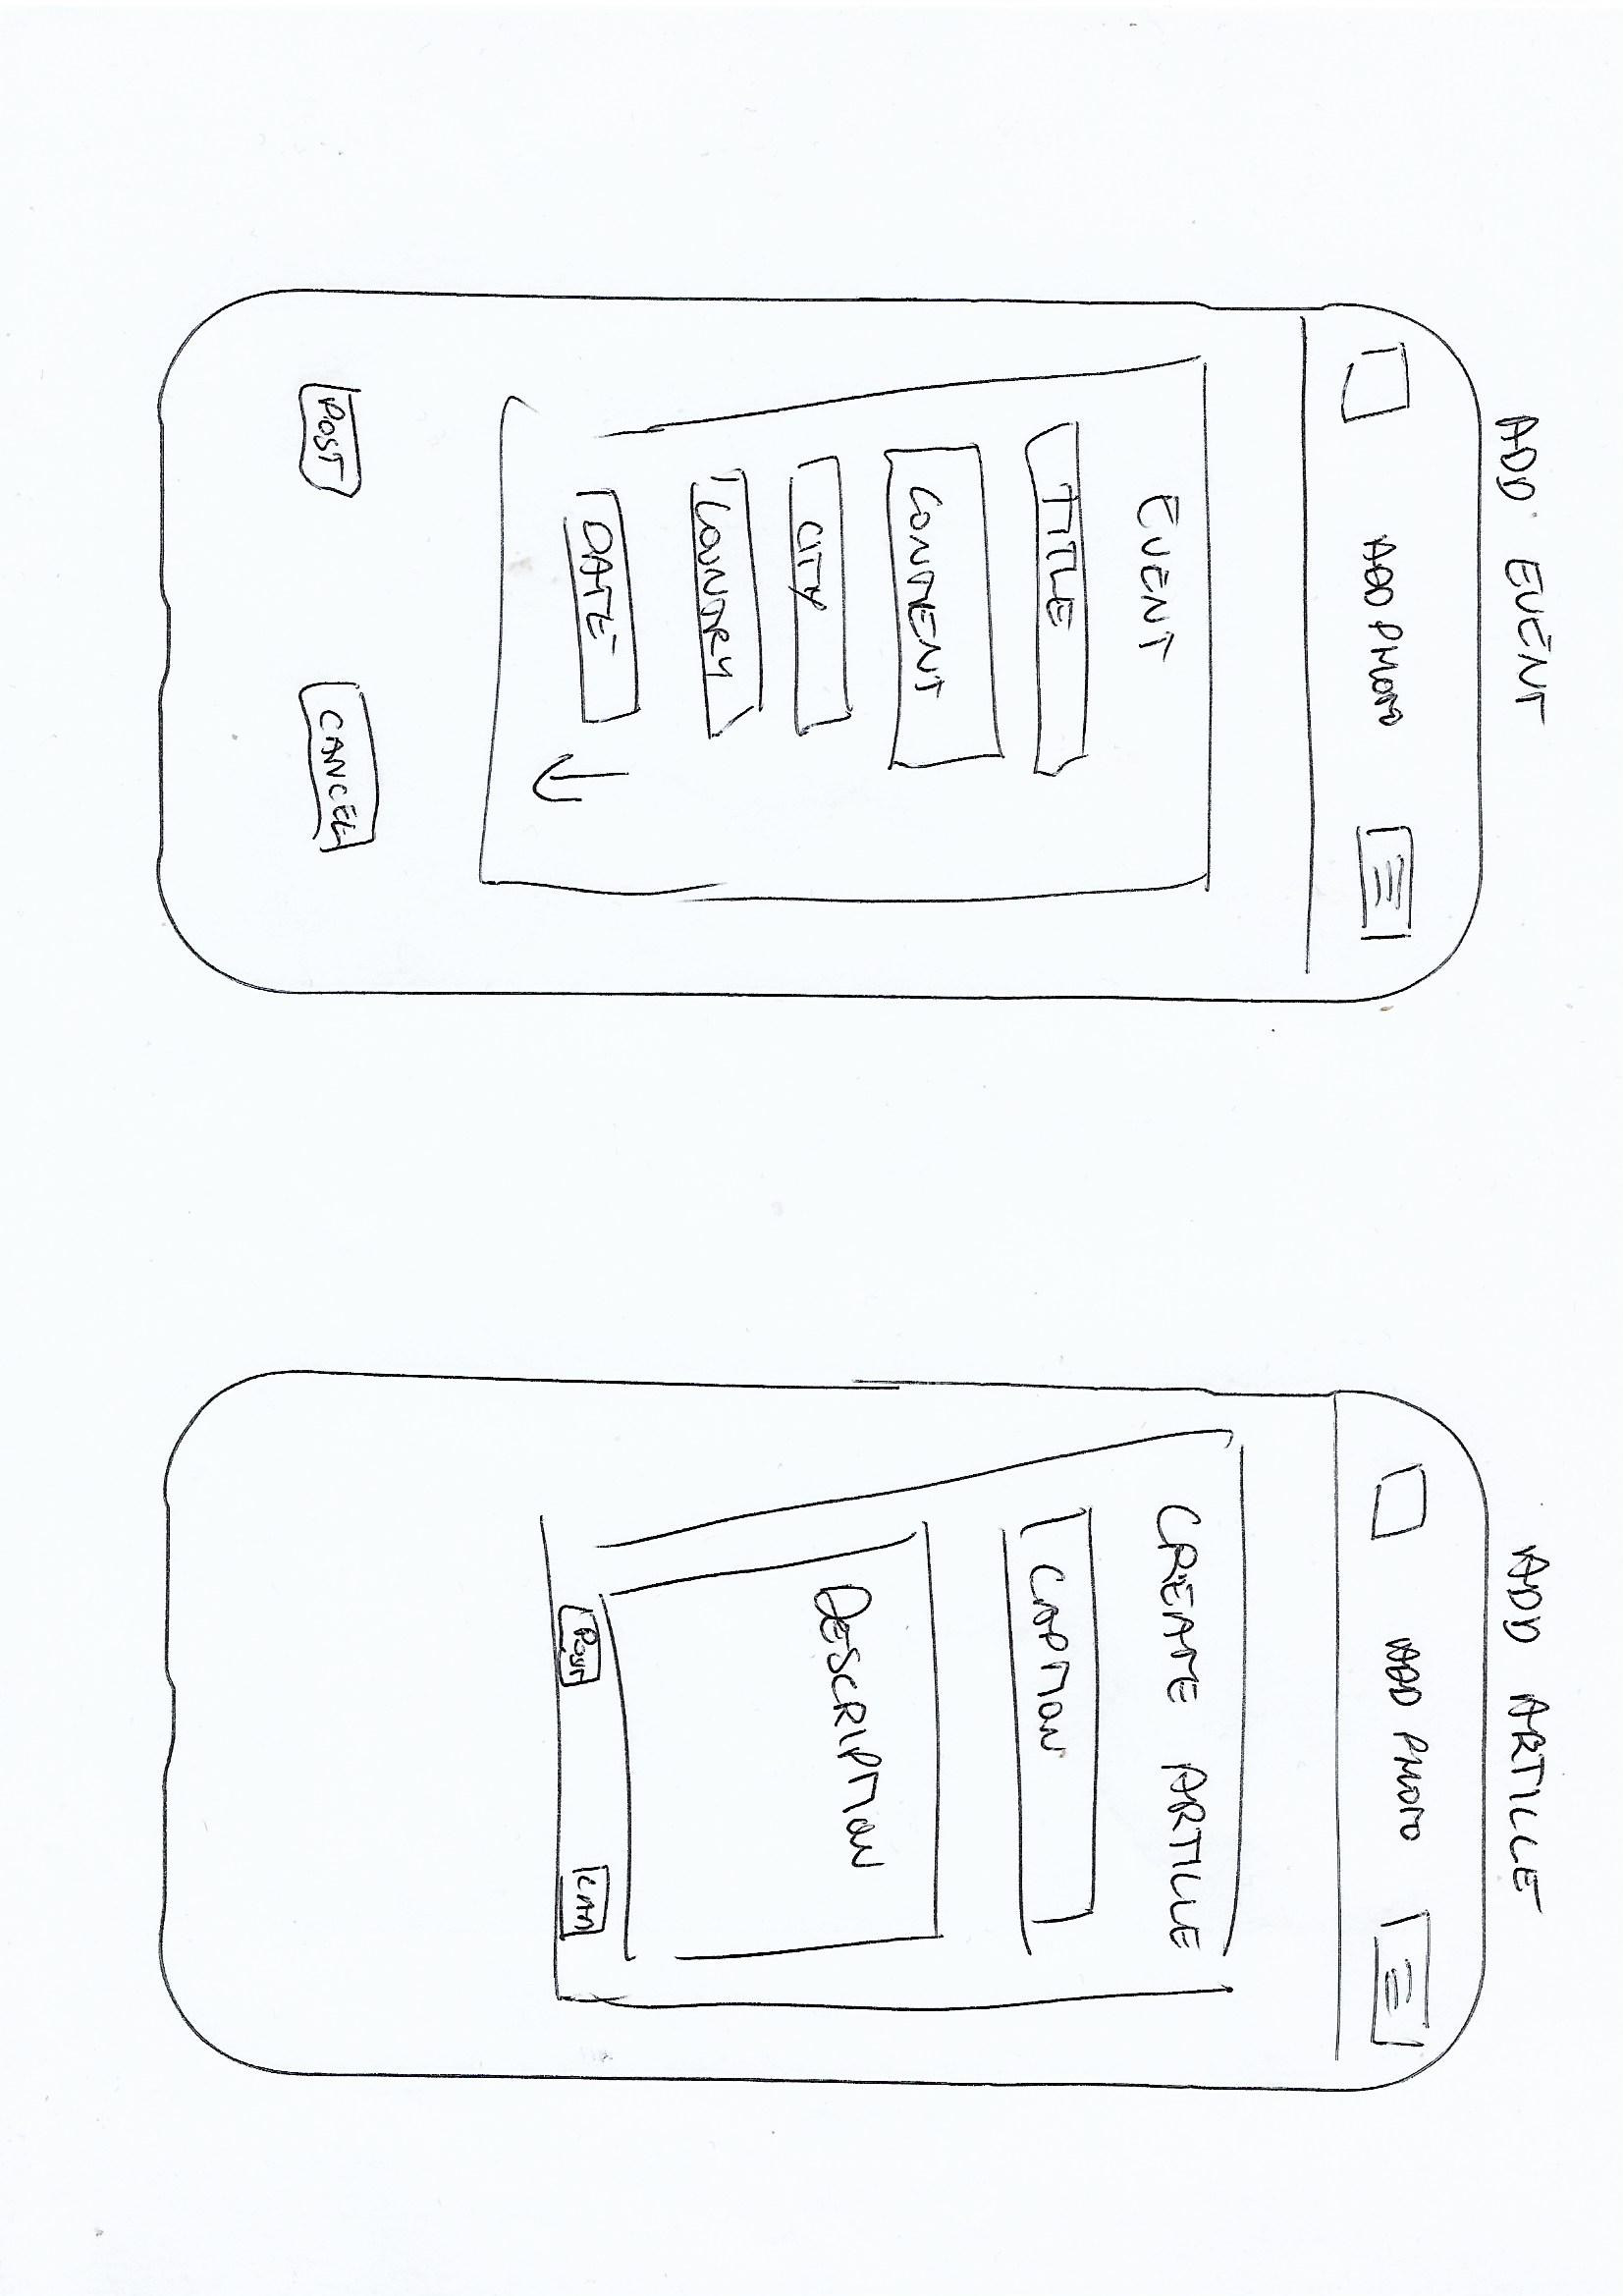 ADD EVENT
ADD PHOTO
EVENT
TITLE
CONTENT
CITY
COUNTRY
DATE
POST
CANCEL
ADD ARTICLE
ADD PHOTO
CREATE ARTICLE
CAPTION
DESCRIPTION
POST
CAN